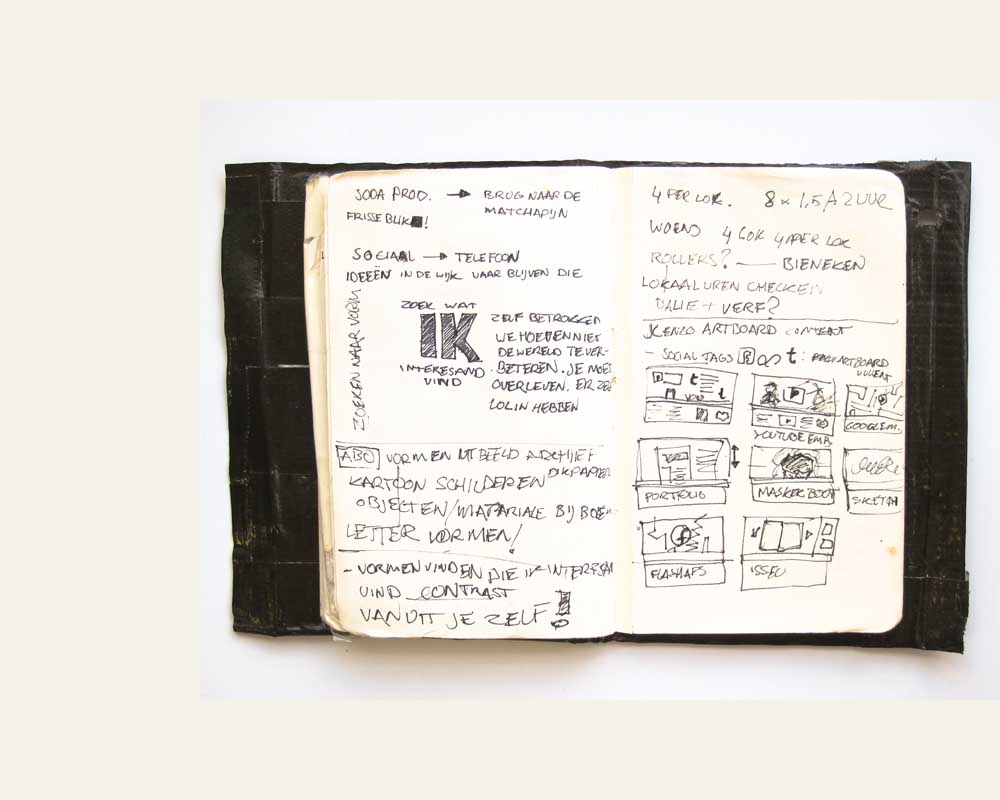 SODA PROD. → BRUG NAAR DE
MATCHAPIJN
FRISSE BLIK!
SOCIAAL → TELEFOON
IDEEËN IN DE WIJK WAAR BLIJVEN DIE
ZOEKEN NAAR VORM
ZOEK WAT
IK
INTERESAND
VIND
ZELF BETROKKEN
WE HOEVEN NIET
DE WERELD TE VER-
BETEREN. JE MOET
OVERLEVEN. ER ZELF
LOL IN HEBBEN
ABC VORMEN UIT BEELD ARCHIEF
DIK PAPIER
KARTOON SCHILDEREN
OBJECTEN/MATARIALE BIJ
LETTER VORMEN!
- VORMEN VINDEN DIE IK
VIND CONTRAST
VAN UIT JE ZELF!
4 PER LOK. 8 x 1,5 A 2 UUR
WOENS 4 LOK 4 PER LOK
ROLLERS? — BIENEKEN
LOKAALUREN CHECKEN
VERF?
KENZO ARTBOARD CONTENT
- SOCIAL TAGS t : ARTBOARD
YOUTUBE EMB.
GOOGLE M.
PORTFOLIO
MASKER BOOT
SKETCH
ISSEU